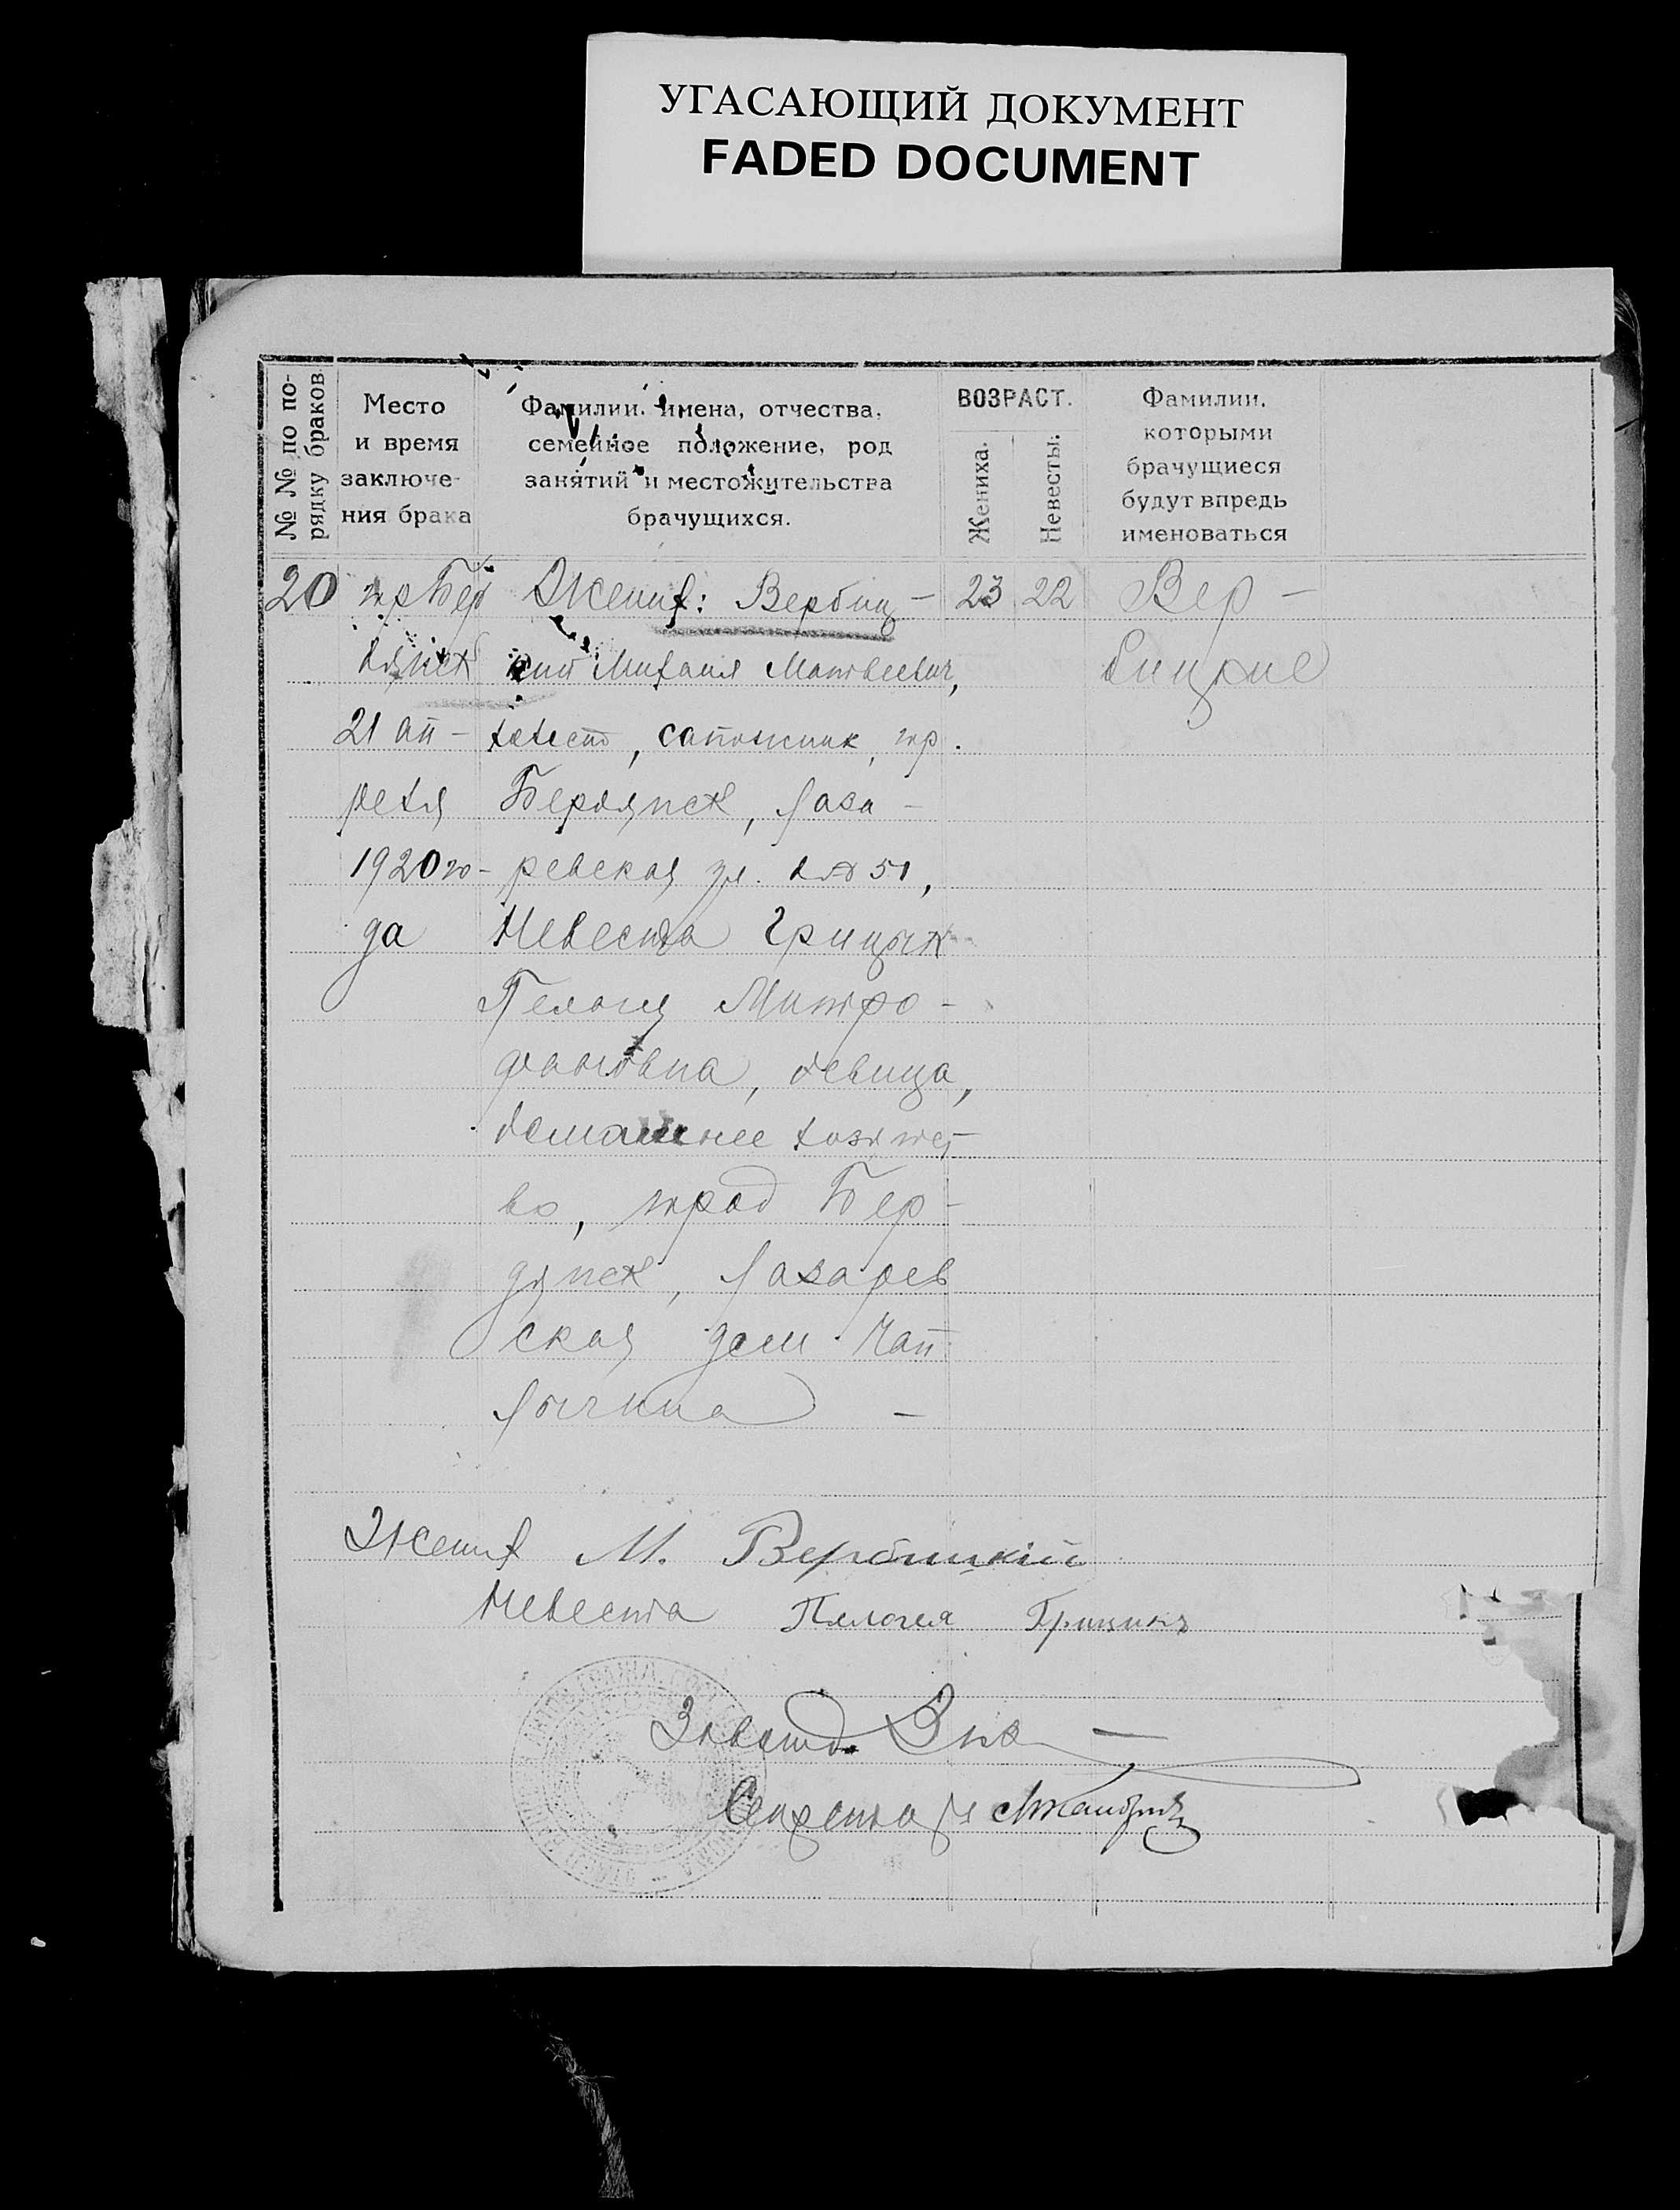 УГАСАЮЩИЙ ДОКУМЕНТ
FADED DOCUMENT
№ № по по-
рядку браков
Место
и время
заключе-
ния брака
Фамилии, имена, отчества,
семейное положение, род
занятий и местожительства
брачущихся.
ВОЗРАСТ.
Жениха.
Невесты.
Фамилии,
которыми
брачущиеся
будут впредь
именоваться
20 гр Бер Жених: Вербиц- 23 22 Вер-
дянск кий Михаил Матвеевич, бицкие
21 ап- холост, сапожник, гр.
реля Бердянск, Лаза-
1920 го- ревская ул. д № 51,
да Невеста Грицык
Пелагия Митро-
фановна, девица,
домашнее хозяйст-
во, град Бер-
дянск, Лазарев
ская дом Чап
лыгина -
Жених М. Вербицкій
Невеста Пелогея Грицикъ
Завотд.
Секретарь